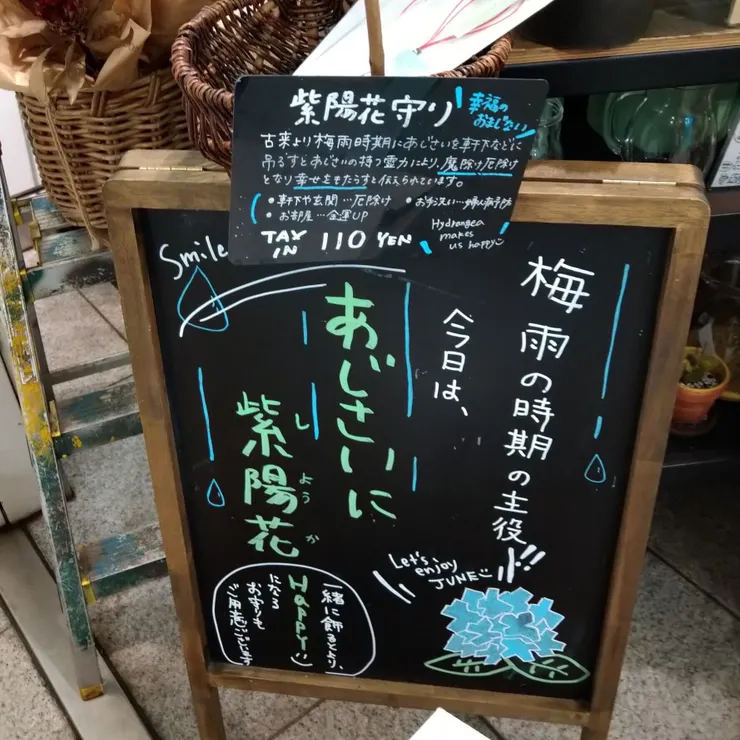 紫陽花守り
幸福の
おまじない
古来より梅雨時期にあじさいを軒下などに
吊るすとあじさいの持つ霊力により、魔除け厄除け
となり幸せをもたらすと伝えられています。
●軒下や玄関…厄除け ●お手洗い…婦人病予防
●お部屋…金運UP
Hydrangea
makes
us happy
TAX
IN 110 YEN
Smile
梅雨の時期の主役!!
今日は、
あじさいに
紫陽花
しようか
Let's
enjoy
JUNE
一緒に飾るとより、
HAPPY
になる
お守りも
ご用意ございます